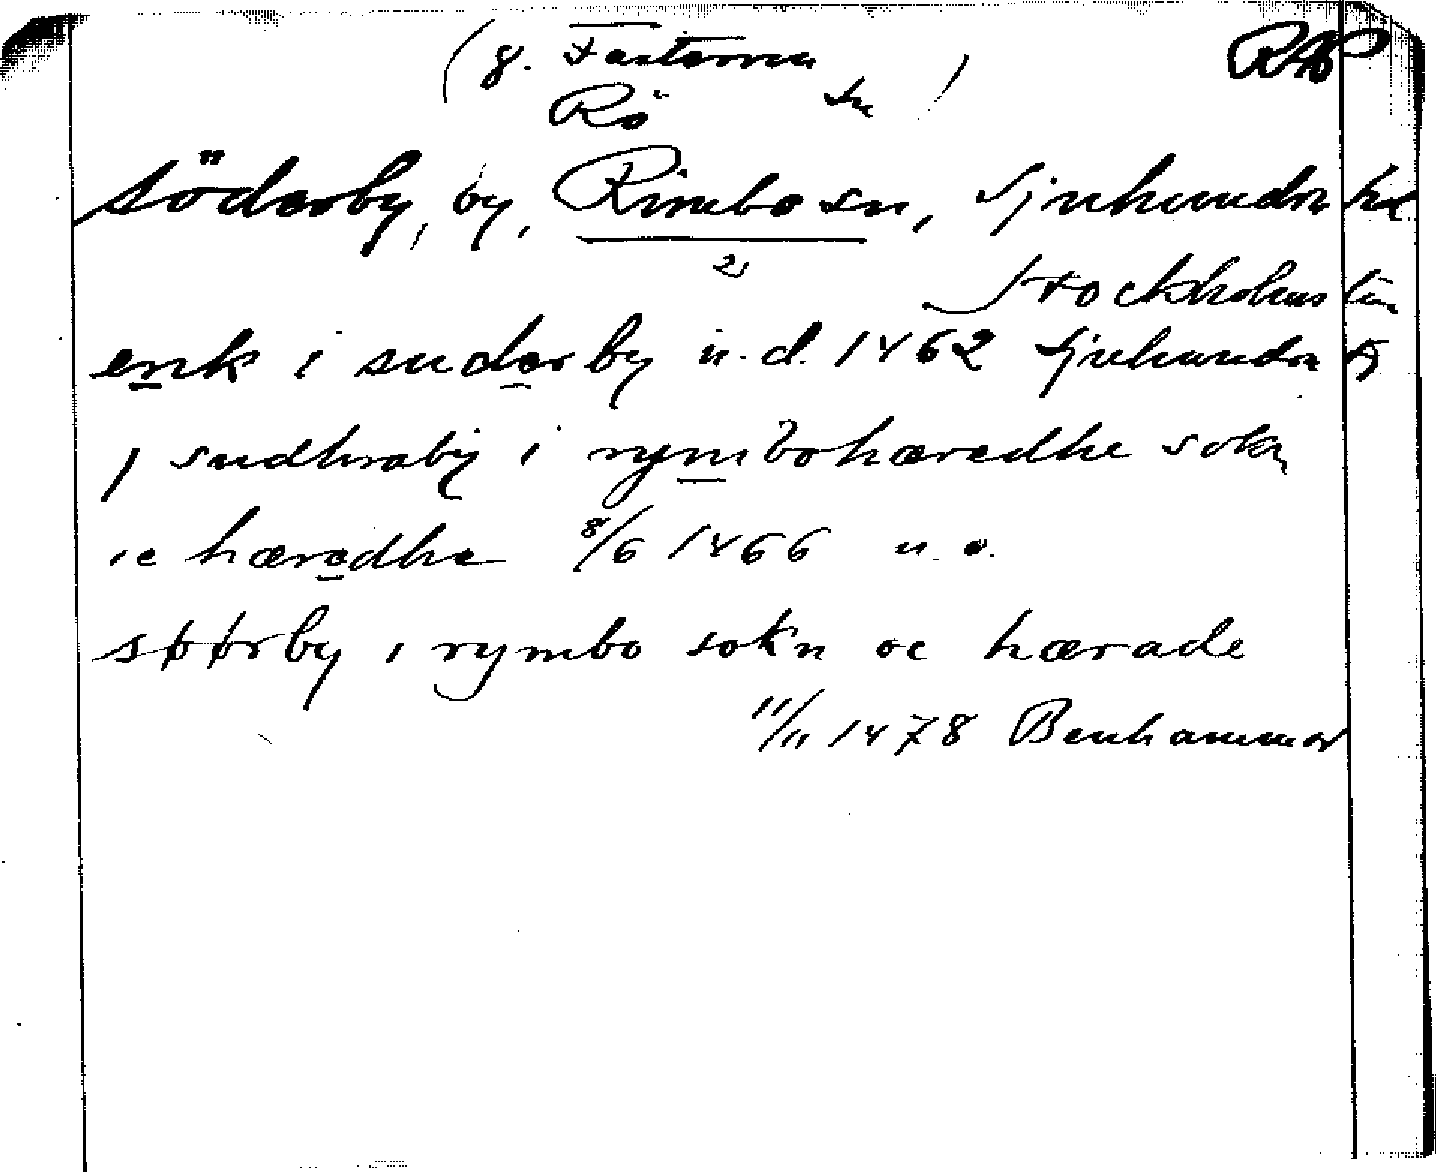 (g. Fasterna sn)
Rö
Söderby, by, Rimbo sn, Sjuhundra hd
2
Stockholms län
enk i suderby u.d. 1462 Sjuhundra
j sudhraby i rymbohæredhe sokn
ic hæredhe 8/6 1466 u.o.
søørby i rymbo sokn oc hærade
11/11 1478 Benhammar